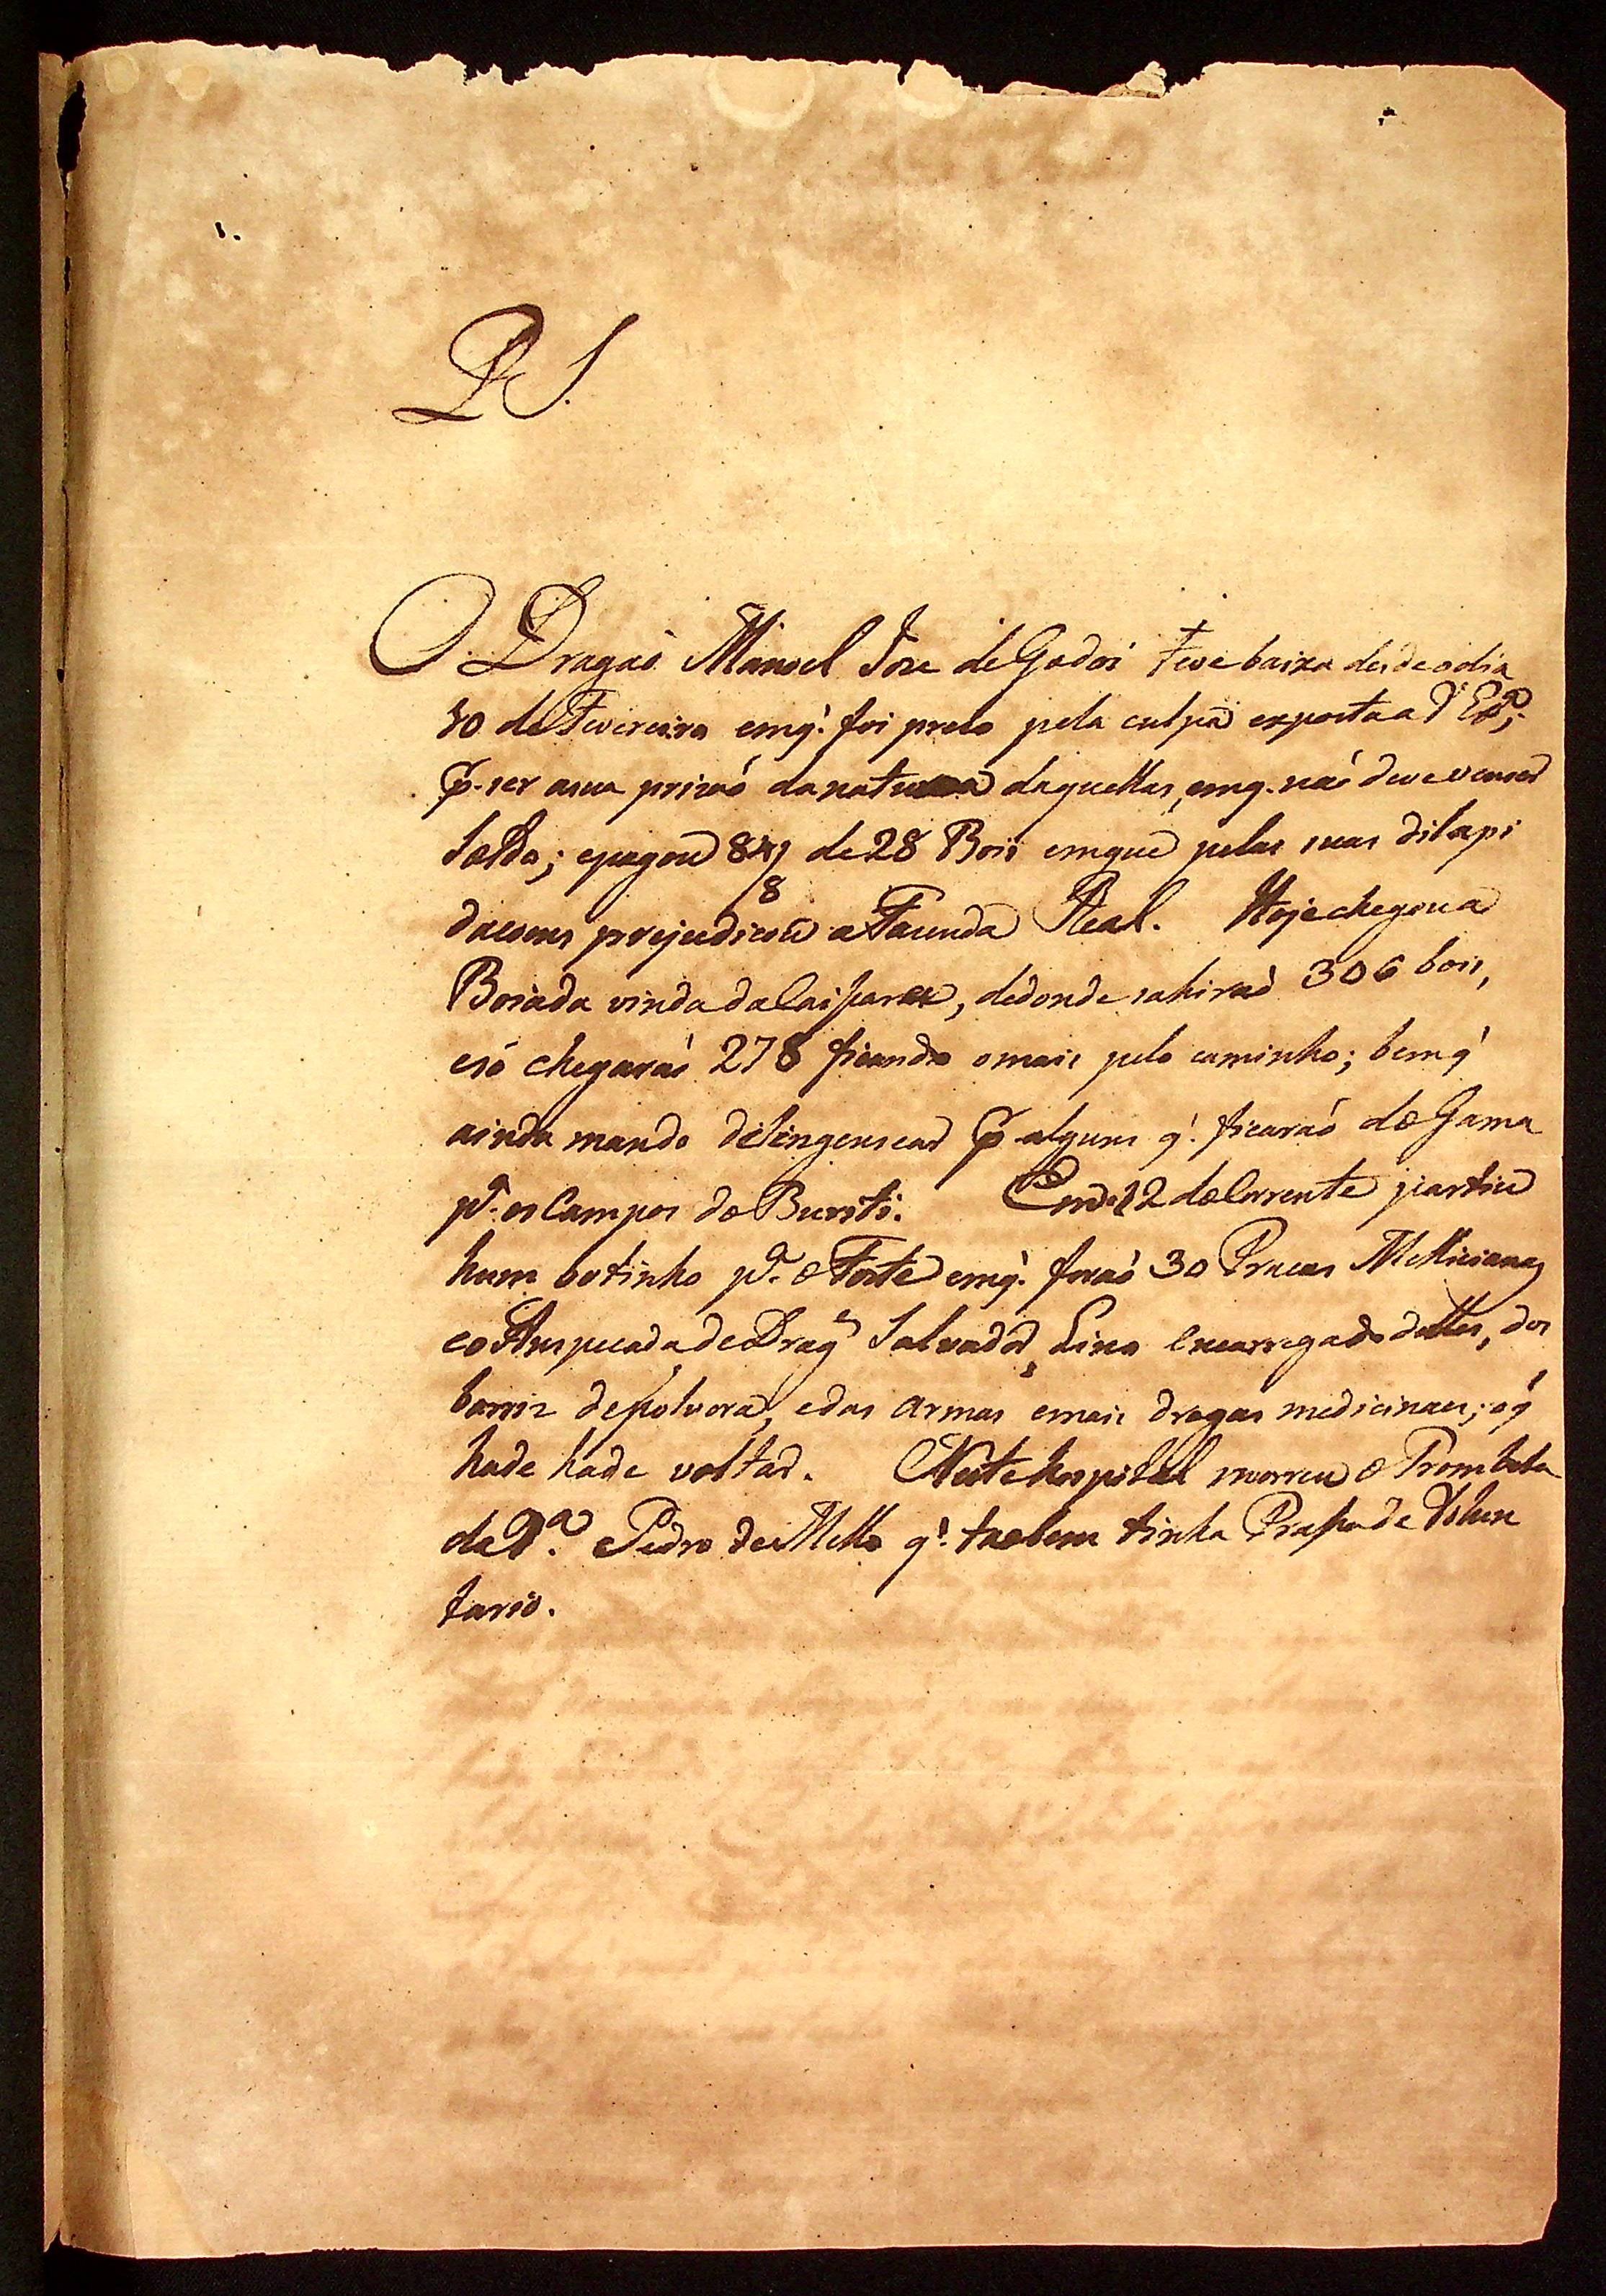 P S.
O Dragaõ Manoel Joze de Godoi teve baixa desde o dia
10 de Fevereiro em q'. foi prezo pela culpa exposta a V Exª;
p. ser a sua prizaõ da natureza daquellas, em q. naõ deve vencer
Soldo; e pagou 84$ de 28 Bois em que pelas suas dilapi
8
dacoens prejudicou a Fazenda Real. Hoje chegou a
Boiada vinda da Caissara, de donde sahiraõ 306 bois,
e só chegaraõ 278 ficando o mais pelo caminho; bem q'
ainda mando delingenciar p alguns q'. ficaraõ do Gama
pª. os Campos do Buriti. Em 12 do Corrente partio
hum botinho pª. o Forte em q'. foraõ 30 Pracas Millicianas
e o Anspecada de Drag.es Salvador Lino Encarregado dellas, dos
barriz de polvora, e das armas e mais drogas medicinaes; o q'
hade hade voltar. Neste hospital morreu o Trombeta
da Pª. Pedro de Mello q'. taobem tinha Prassa de Volun
tario.